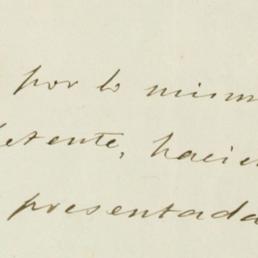 por lo mism
etente, hacien
presentada